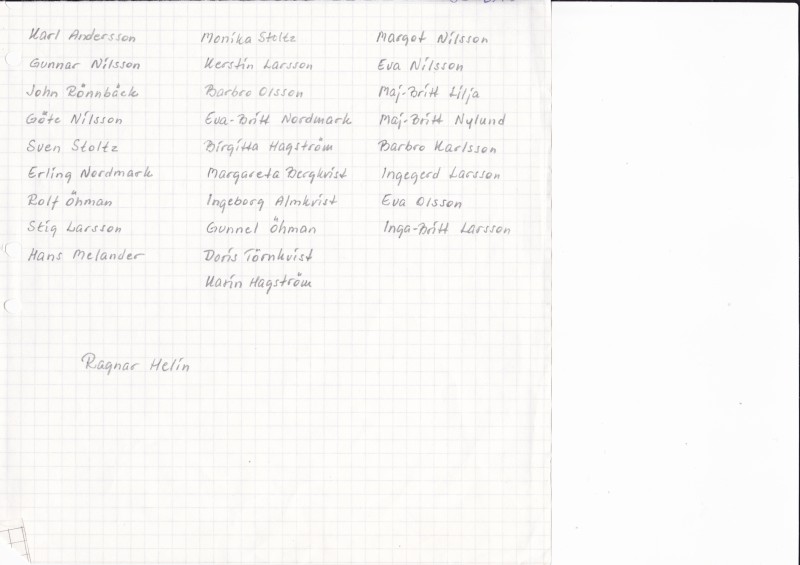 Karl Andersson
Gunnar Nilsson
John Rönnbäck
Göte Nilsson
Sven Stoltz
Erling Nordmark
Rolf Öhman
Stig Larsson
Hans Melander
Monika Stoltz
Kerstin Larsson
Barbro Olsson
Eva-Britt Nordmark
Birgitta Hagström
Margareta Bergkvist
Ingeborg Almkvist
Gunnel Öhman
Doris Törnkvist
Karin Hagström
Margot Nilsson
Eva Nilsson
Maj-Britt Lilja
Maj-Britt Nylund
Barbro Karlsson
Ingegerd Larsson
Eva Olsson
Inga-Britt Larsson
Ragnar Helin